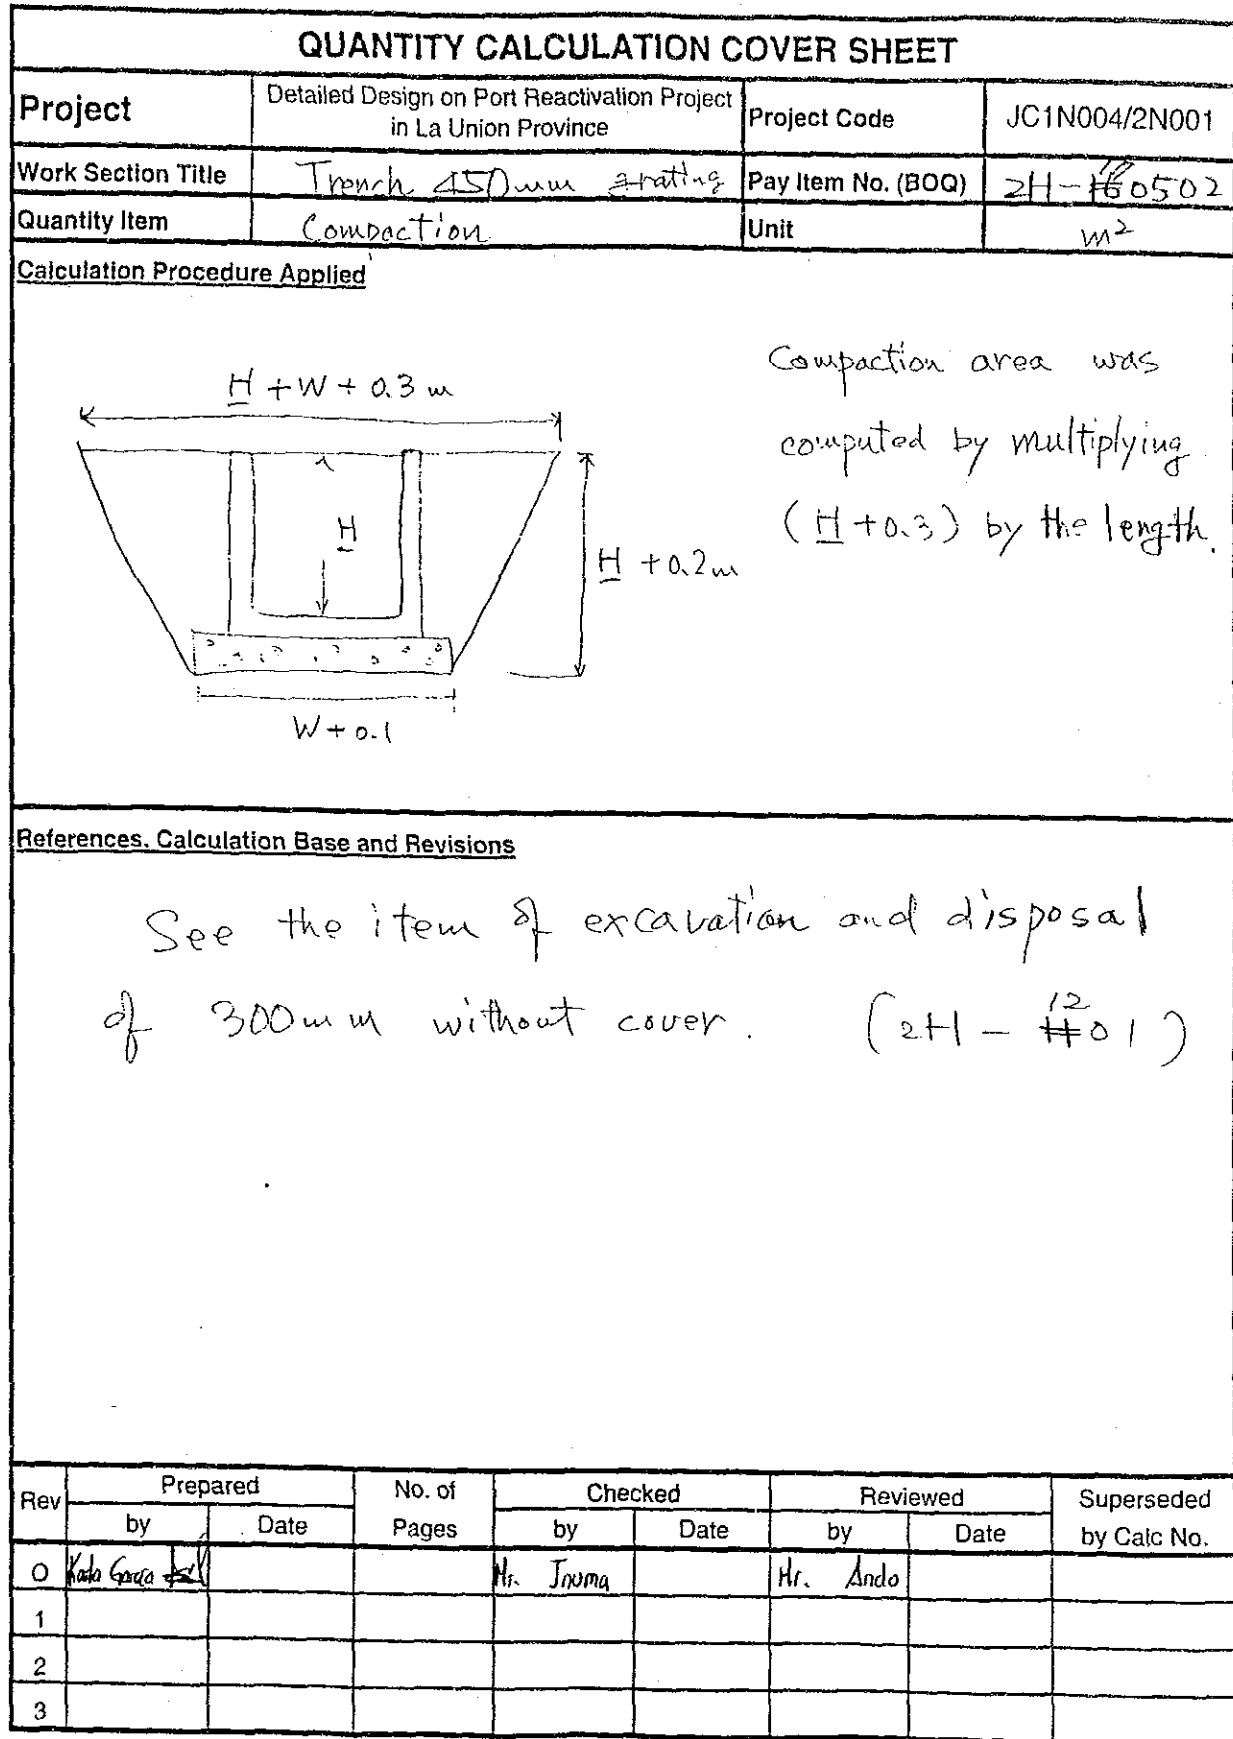 QUANTITY CALCULATION COVER SHEET
Project
Detailed Design on Port Reactivation Project
in La Union Province
Project Code
JC1N004/2N001
Work Section Title
Trench 450mm grating
Pay Item No. (BOQ)
2H-0502
Quantity Item
Compaction
Unit
m²
Calculation Procedure Applied
H + W + 0.3 m
H
H + 0.2m
W + 0.1
Compaction area was
computed by multiplying
(H + 0.3) by the length.
References, Calculation Base and Revisions
See the item of excavation and disposal
of 300mm without cover. (2H - 1201)
Rev
Prepared
No. of
Pages
Checked
Reviewed
Superseded
by Calc No.
by Date by Date by Date
0 Mr. Inuma Mr. Ando
1
2
3